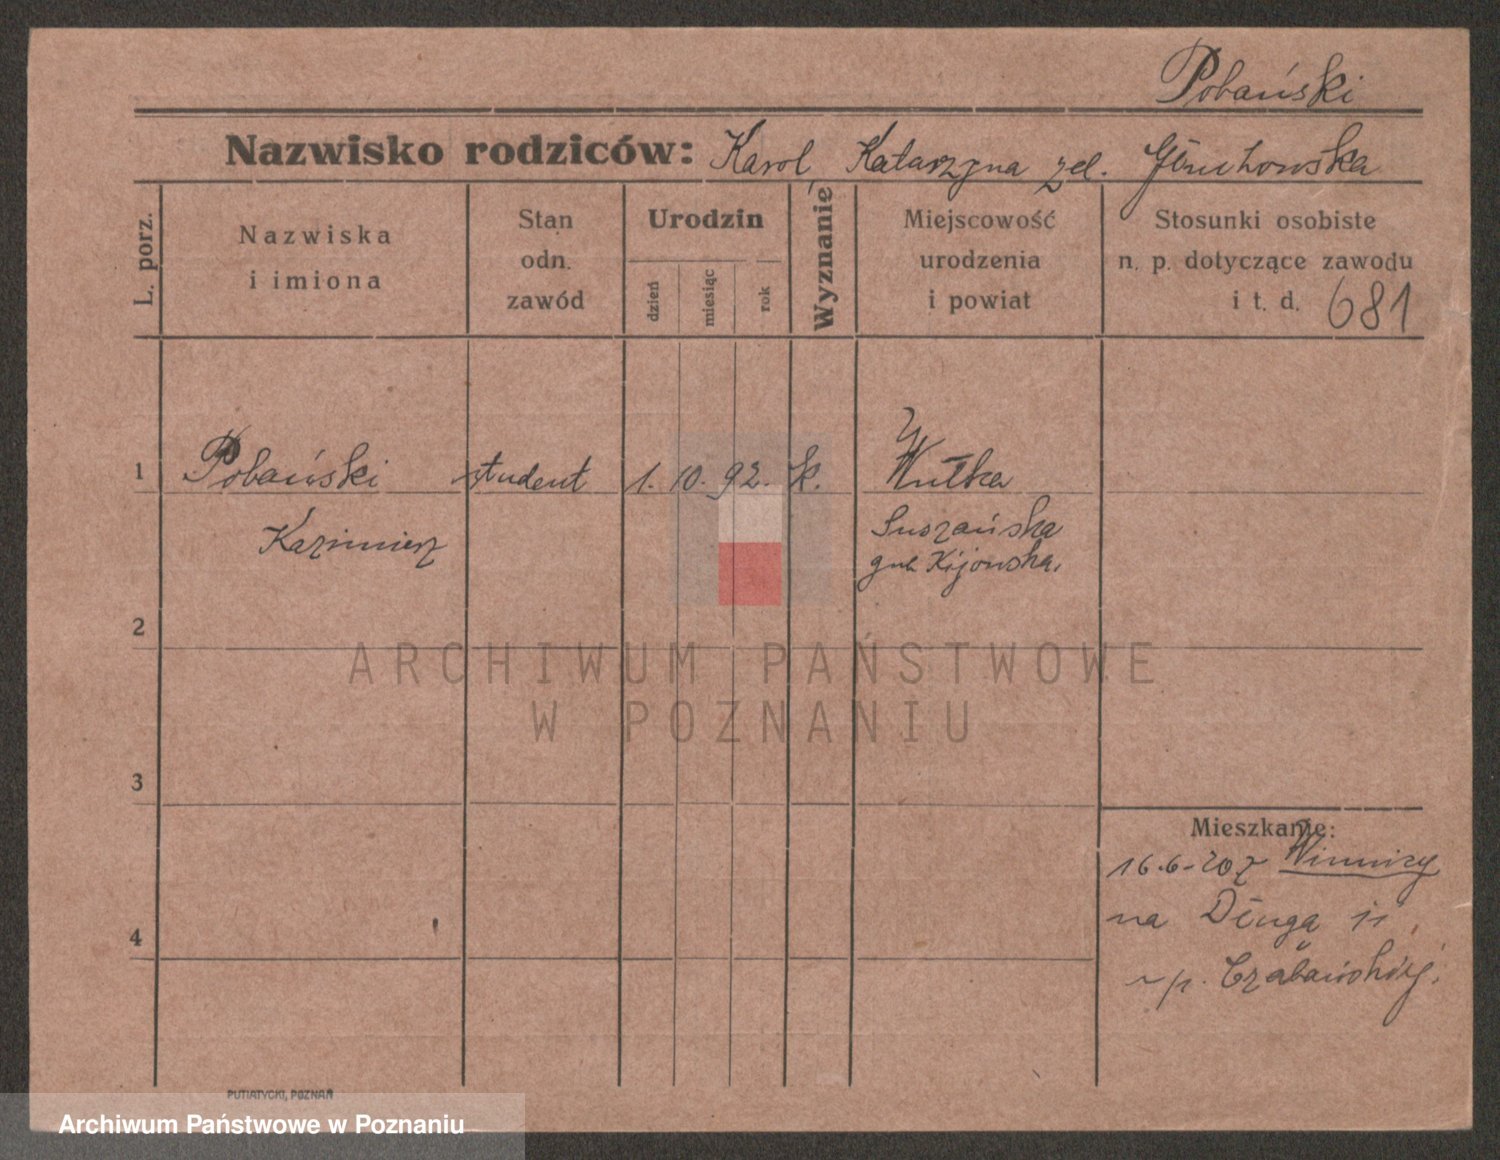 Pobański
Nazwisko rodziców: Karol, Katarzyna zel.
L. porz.
Nazwiska
i imiona
Stan
odn.
zawód
Urodzin
dzień
miesiąc
rok
Wyznanie
Miejscowość
urodzenia
i powiat
Stosunki osobiste
n. p. dotyczące zawodu
i t. d. 681
1 Pobański student 1. 10. 92. k. Wułka
Kazimierz
Suszańska
gub Kijowska.
2
3
4
Mieszkanie:
16.6-20 z Winnicy
na Długą 11
u p.
ARCHIWUM PAŃSTWOWE
W POZNANIU
PUTIATYCKI, POZNAŃ
Archiwum Państwowe w Poznaniu